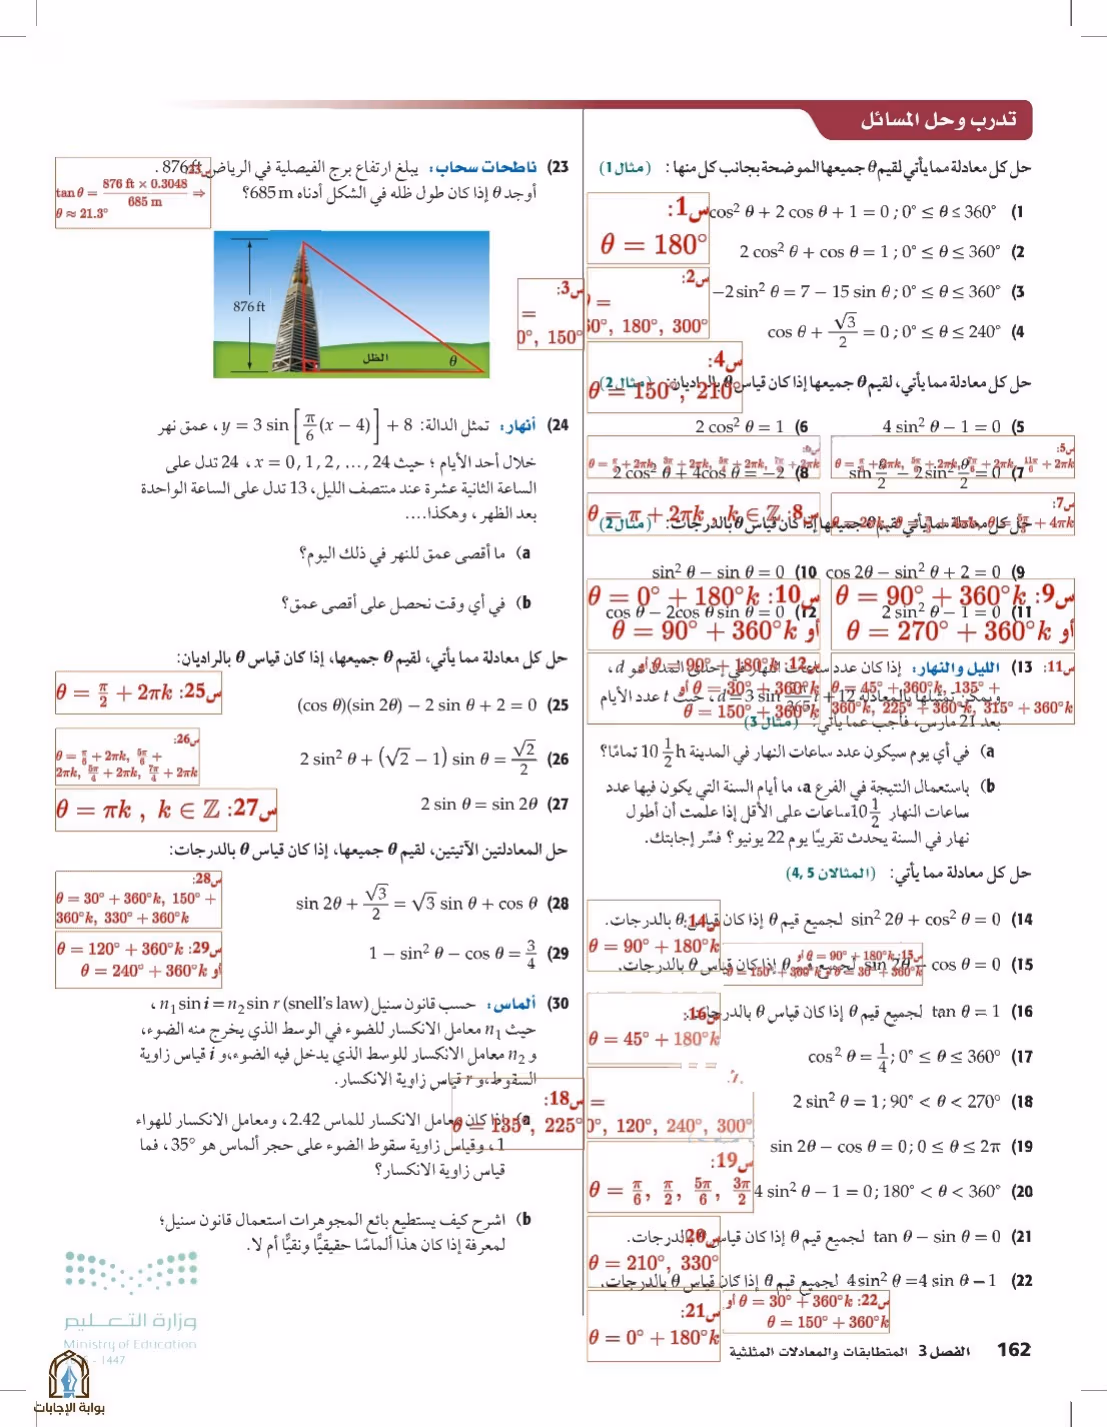 تدرب وحل المسائل
حل كل معادلة مما يأتي لقيم θ جميعها الموضحة بجانب كل منها : (مثال 1)
(1 cos² θ + 2 cos θ + 1 = 0 ; 0° ≤ θ ≤ 360°
س1:
θ = 180°
(2 2 cos² θ + cos θ = 1 ; 0° ≤ θ ≤ 360°
س2:
θ =
60°, 180°, 300°
(3 −2 sin² θ = 7 − 15 sin θ ; 0° ≤ θ ≤ 360°
س3:
=
0°, 150°
(4 cos θ + √3/2 = 0 ; 0° ≤ θ ≤ 240°
س4:
θ = 150°, 210°
حل كل معادلة مما يأتي، لقيم θ جميعها إذا كان قياس θ بالراديان: (مثال 2)
(5 4 sin² θ − 1 = 0
(6 2 cos² θ = 1
س5:
θ = π/6 + 2πk, 5π/6 + 2πk, 7π/6 + 2πk, 11π/6 + 2πk
(7 sin θ/2 − 2 sin² θ/2 = 0
(8 2 cos² θ + 4cos θ = −2
س7:
س8: θ = π + 2πk , k ∈ ℤ
حل كل معادلة مما يأتي لقيم θ جميعها إذا كان قياس θ بالدرجات: (مثال 2)
(9 cos 2θ − sin² θ + 2 = 0
(10 sin² θ − sin θ = 0
س9: θ = 90° + 360°k
أو θ = 270° + 360°k
س10: θ = 0° + 180°k
أو θ = 90° + 360°k
(11 2 sin² θ − 1 = 0
(12 cos θ − 2cos θ sin θ = 0
س11:
θ = 45° + 360°k, 135° +
360°k, 225° + 360°k, 315° + 360°k
س12: θ = 90° + 180°k أو
θ = 30° + 360°k أو
θ = 150° + 360°k
(13 الليل والنهار: إذا كان عدد ساعات النهار في إحدى المدن هو d ،
ويمكن تمثيلها بالمعادلة d = 3 sin 2πt/365 + 12 ، حيث t عدد الأيام
بعد 21 مارس، فأجب عما يأتي: (مثال 3)
(a في أي يوم سيكون عدد ساعات النهار في المدينة 10 1/2 h تمامًا؟
(b باستعمال النتيجة في الفرع a، ما أيام السنة التي يكون فيها عدد
ساعات النهار 10 1/2 ساعات على الأقل إذا علمت أن أطول
نهار في السنة يحدث تقريبًا يوم 22 يونيو؟ فسّر إجابتك.
حل كل معادلة مما يأتي: (المثالان 4, 5)
(14 sin² 2θ + cos² θ = 0 لجميع قيم θ إذا كان قياس θ بالدرجات.
س14:
θ = 90° + 180°k
(15 sin 2θ − cos θ = 0 لجميع قيم θ إذا كان قياس θ بالدرجات.
س15: θ = 90° + 180°k أو
θ = 30° + 360°k أو θ = 150° + 360°k
(16 tan θ = 1 لجميع قيم θ إذا كان قياس θ بالدرجات.
س16:
θ = 45° + 180°k
(17 cos² θ = 1/4 ; 0° ≤ θ ≤ 360°
=
0°, 120°, 240°, 300°
(18 2 sin² θ = 1 ; 90° < θ < 270°
س18:
θ = 135°, 225°
(19 sin 2θ − cos θ = 0 ; 0 ≤ θ ≤ 2π
س19:
θ = π/6, π/2, 5π/6, 3π/2
(20 4 sin² θ − 1 = 0 ; 180° < θ < 360°
س20:
θ = 210°, 330°
(21 tan θ − sin θ = 0 لجميع قيم θ إذا كان قياس θ بالدرجات.
س21:
θ = 0° + 180°k
(22 4 sin² θ = 4 sin θ − 1 لجميع قيم θ إذا كان قياس θ بالدرجات.
س22: θ = 30° + 360°k أو
θ = 150° + 360°k
(23 ناطحات سحاب: يبلغ ارتفاع برج الفيصلية في الرياض 876 ft .
أوجد θ إذا كان طول ظله في الشكل أدناه 685 m؟
س23:
tan θ = 876 ft × 0.3048 / 685 m ⇒
θ ≈ 21.3°
876 ft
الظل
θ
(24 أنهار: تمثل الدالة: y = 3 sin [π/6 (x − 4)] + 8 ، عمق نهر
خلال أحد الأيام ؛ حيث x = 0, 1, 2, …, 24 ، 24 تدل على
الساعة الثانية عشرة عند منتصف الليل، 13 تدل على الساعة الواحدة
بعد الظهر ، وهكذا....
(a ما أقصى عمق للنهر في ذلك اليوم؟
(b في أي وقت نحصل على أقصى عمق؟
حل كل معادلة مما يأتي، لقيم θ جميعها، إذا كان قياس θ بالراديان:
(25 (cos θ)(sin 2θ) − 2 sin θ + 2 = 0
س25: θ = π/2 + 2πk
(26 2 sin² θ + (√2 − 1) sin θ = √2/2
س26:
θ = π/6 + 2πk, 5π/6 +
2πk, 5π/4 + 2πk, 7π/4 + 2πk
(27 2 sin θ = sin 2θ
س27: θ = πk , k ∈ ℤ
حل المعادلتين الآتيتين، لقيم θ جميعها، إذا كان قياس θ بالدرجات:
(28 sin 2θ + √3/2 = √3 sin θ + cos θ
س28:
θ = 30° + 360°k, 150° +
360°k, 330° + 360°k
(29 1 − sin² θ − cos θ = 3/4
س29: θ = 120° + 360°k
أو θ = 240° + 360°k
(30 ألماس: حسب قانون سنيل (snell's law) n₁ sin i = n₂ sin r ،
حيث n₁ معامل الانكسار للضوء في الوسط الذي يخرج منه الضوء،
و n₂ معامل الانكسار للوسط الذي يدخل فيه الضوء،و i قياس زاوية
السقوط،و r قياس زاوية الانكسار.
(a إذا كان معامل الانكسار للماس 2.42، ومعامل الانكسار للهواء
1 ، وقياس زاوية سقوط الضوء على حجر ألماس هو 35°، فما
قياس زاوية الانكسار؟
(b اشرح كيف يستطيع بائع المجوهرات استعمال قانون سنيل؛
لمعرفة إذا كان هذا ألماسًا حقيقيًّا ونقيًّا أم لا.
وزارة التعليم
Ministry of Education
- 1447
بوابة الإجابات
162 الفصل 3 المتطابقات والمعادلات المثلثية